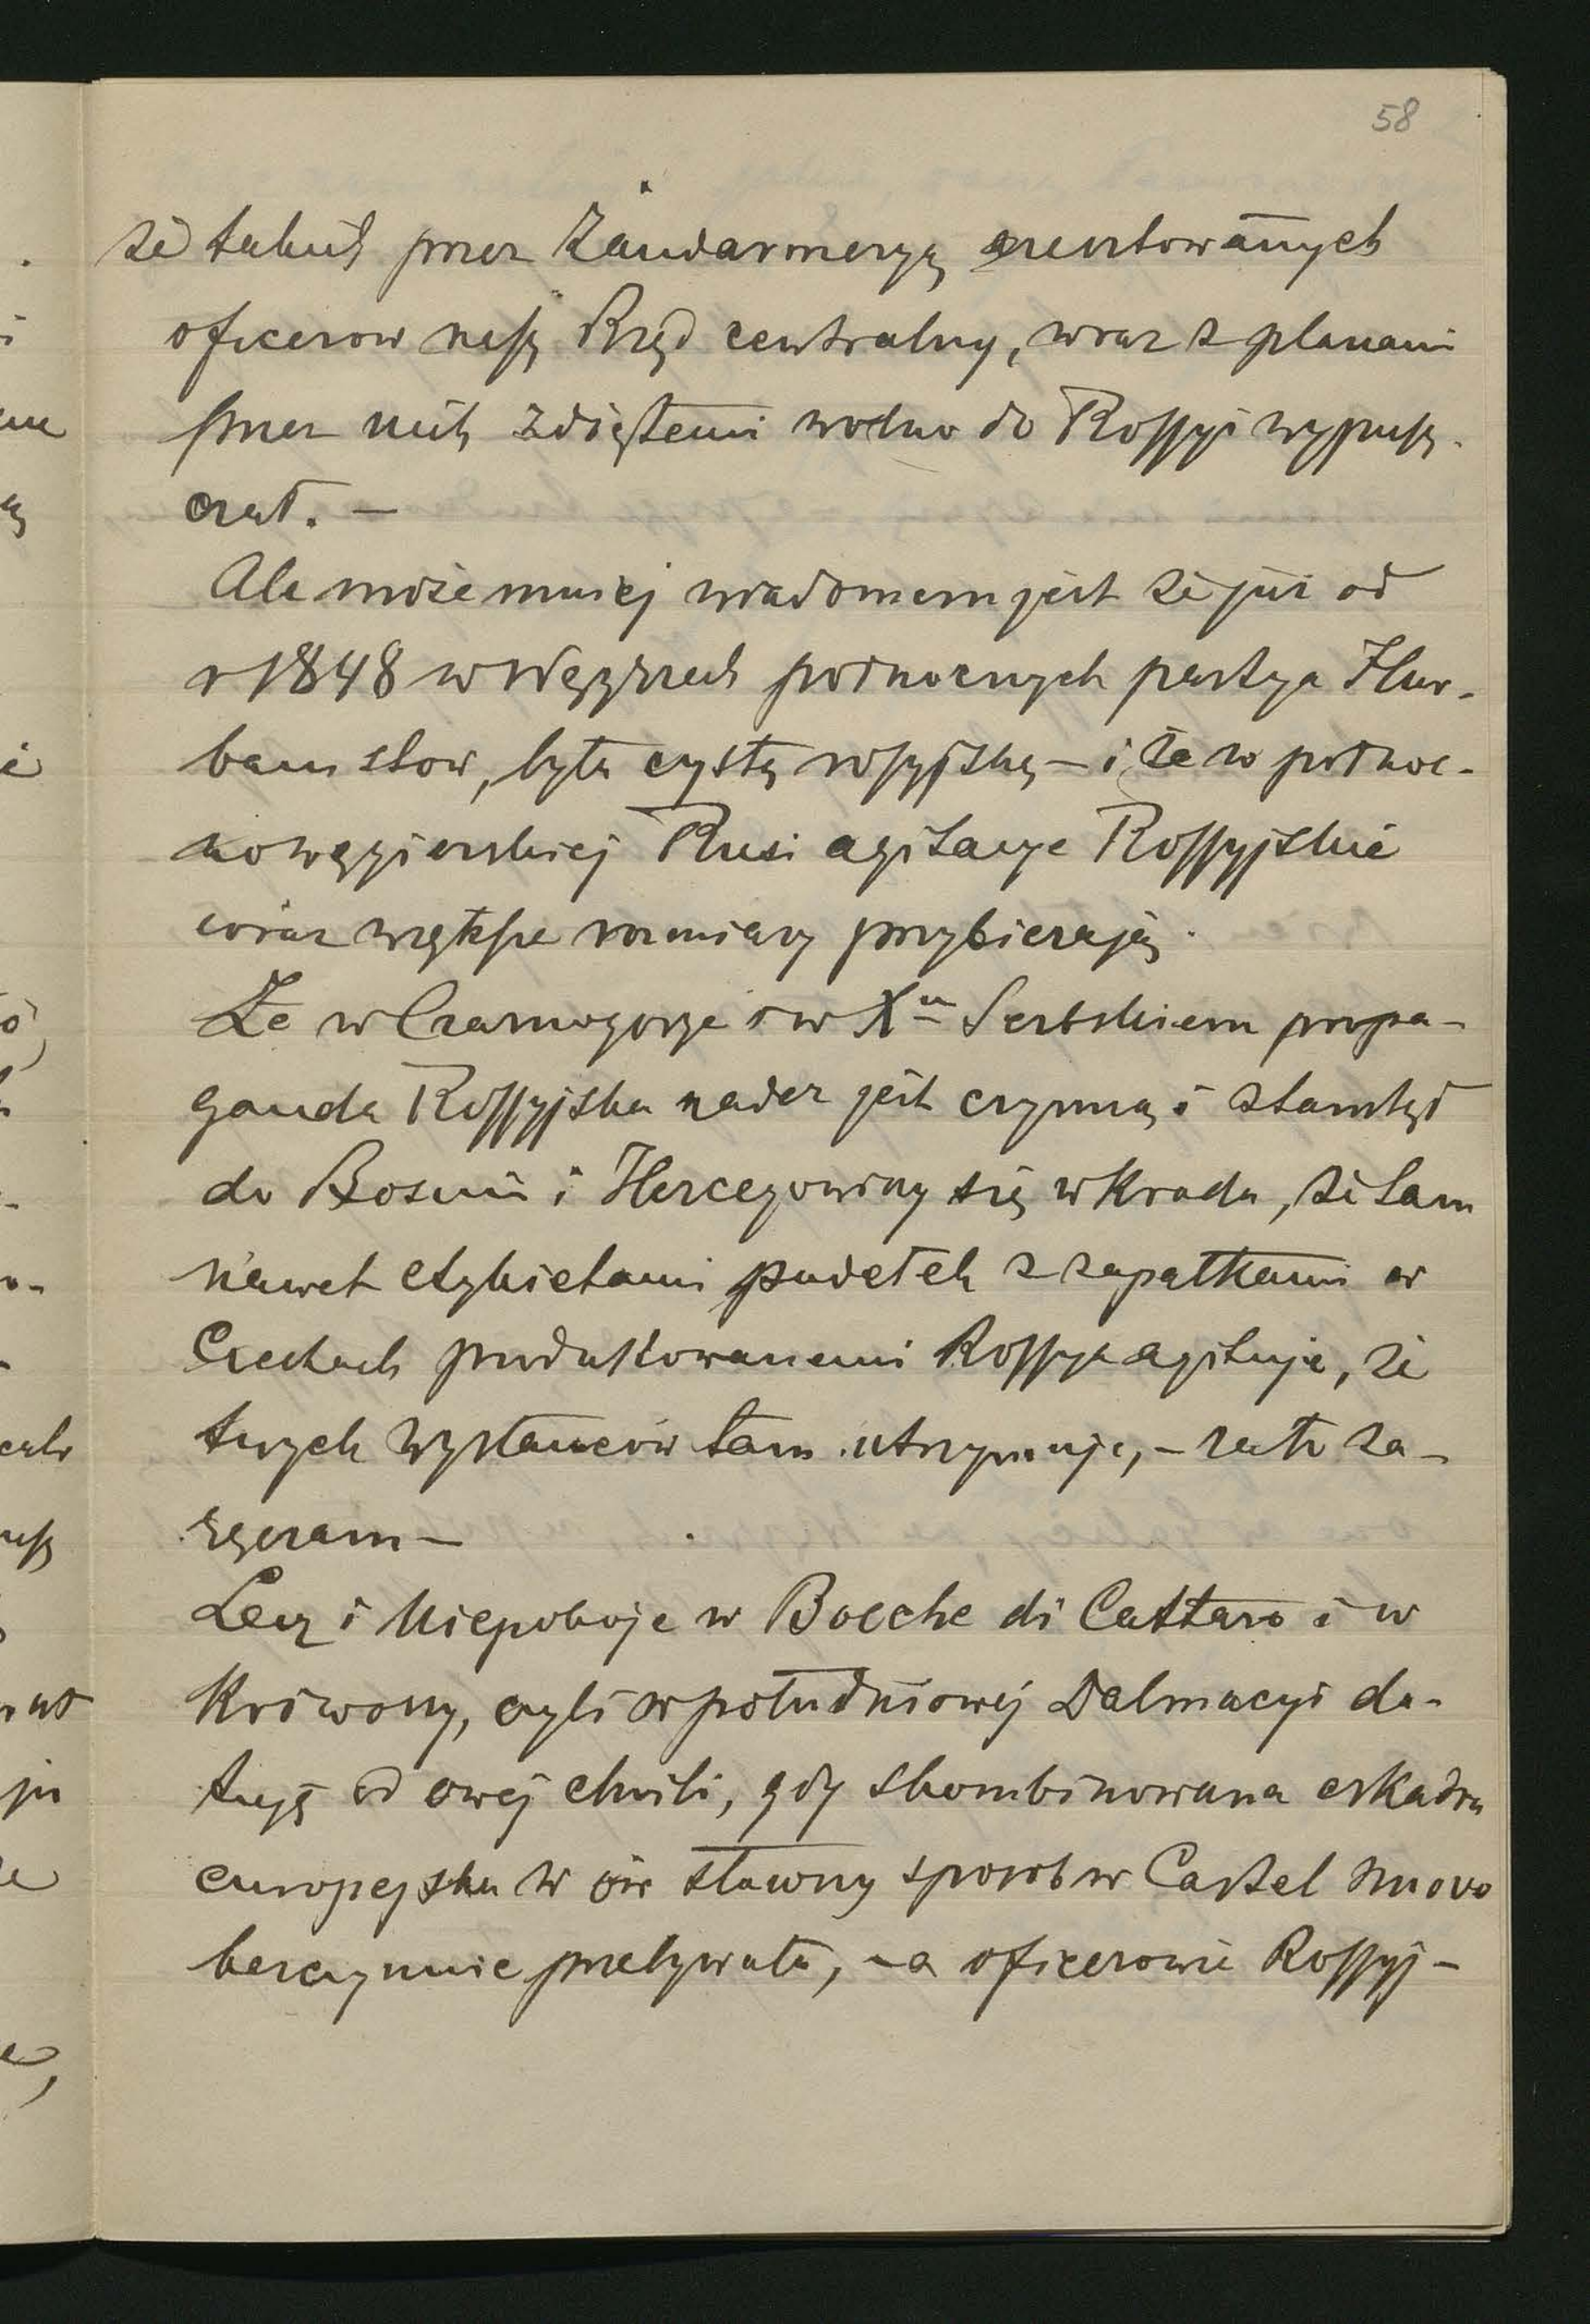 58
że takich przez Żandarmeryą aresztowanych
oficerow nasz Rząd centralny, wraz z planami
przez nich zdjętemi wolno do Rossyi wypusz-
czał. —
Ale może mniej wiadomem jest że już od
r 1848 w Węgrzech północnych partya Hur-
banistow, była czystą rossyjską — i że w północ-
nowęgierskiej Rusi agitacye Rossyjskie
coraz większe rozmiary przybierają.
Że w Czarnogorze i w Xᵘ Serbskiem propa-
ganda Rossyjska nader jest czynną i ztamtąd
do Bosnii i Hercegowiny się wkrada, że tam
nawet etykietami pudełek z zapałkami w
Czechach produkowanemi Rossya agituje, że
swych wysłańców tam utrzymuje, — za to za-
ręczam —
Lecz i Niepokoje w Bocche di Cattaro i w
Kriwoszy, czyli w południowej Dalmacyi da-
tują od owej chwili, gdy skombinowana eskadra
europejska w ów sławny sposob w Castel nuovo
bezczynnie przebywała, — a oficerowie Rossyj-